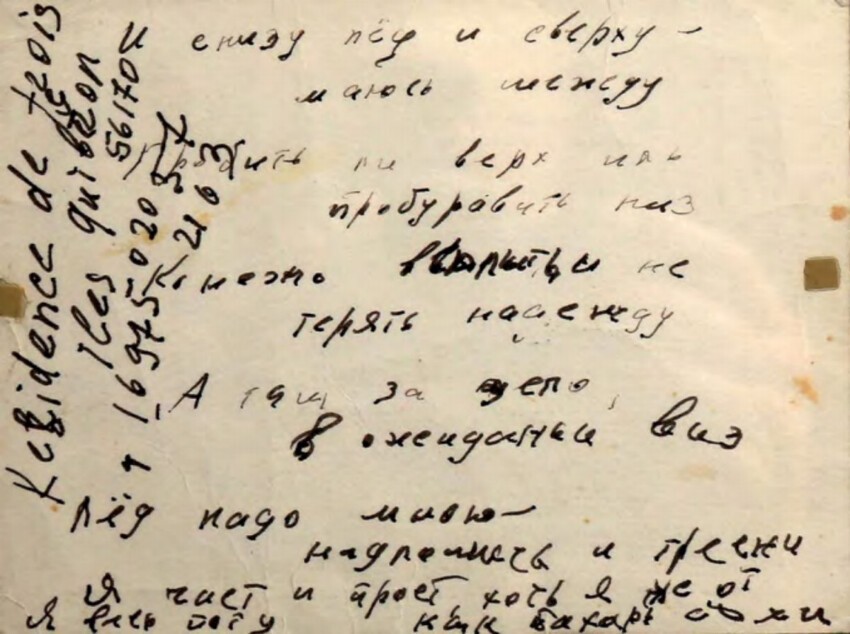 И снизу лёд и сверху –
маюсь между
Пробить ли верх иль
пробуравить низ
Конечно всплыть и не
терять надежду
А там за дело,
в ожиданьи виз
Лёд надо мною –
надломись и тресни
я чист и прост хоть я не от
я весь в поту как пахарь сохи
Residence de trois
Iles quiberon
56170
16 975-020 37
21 63